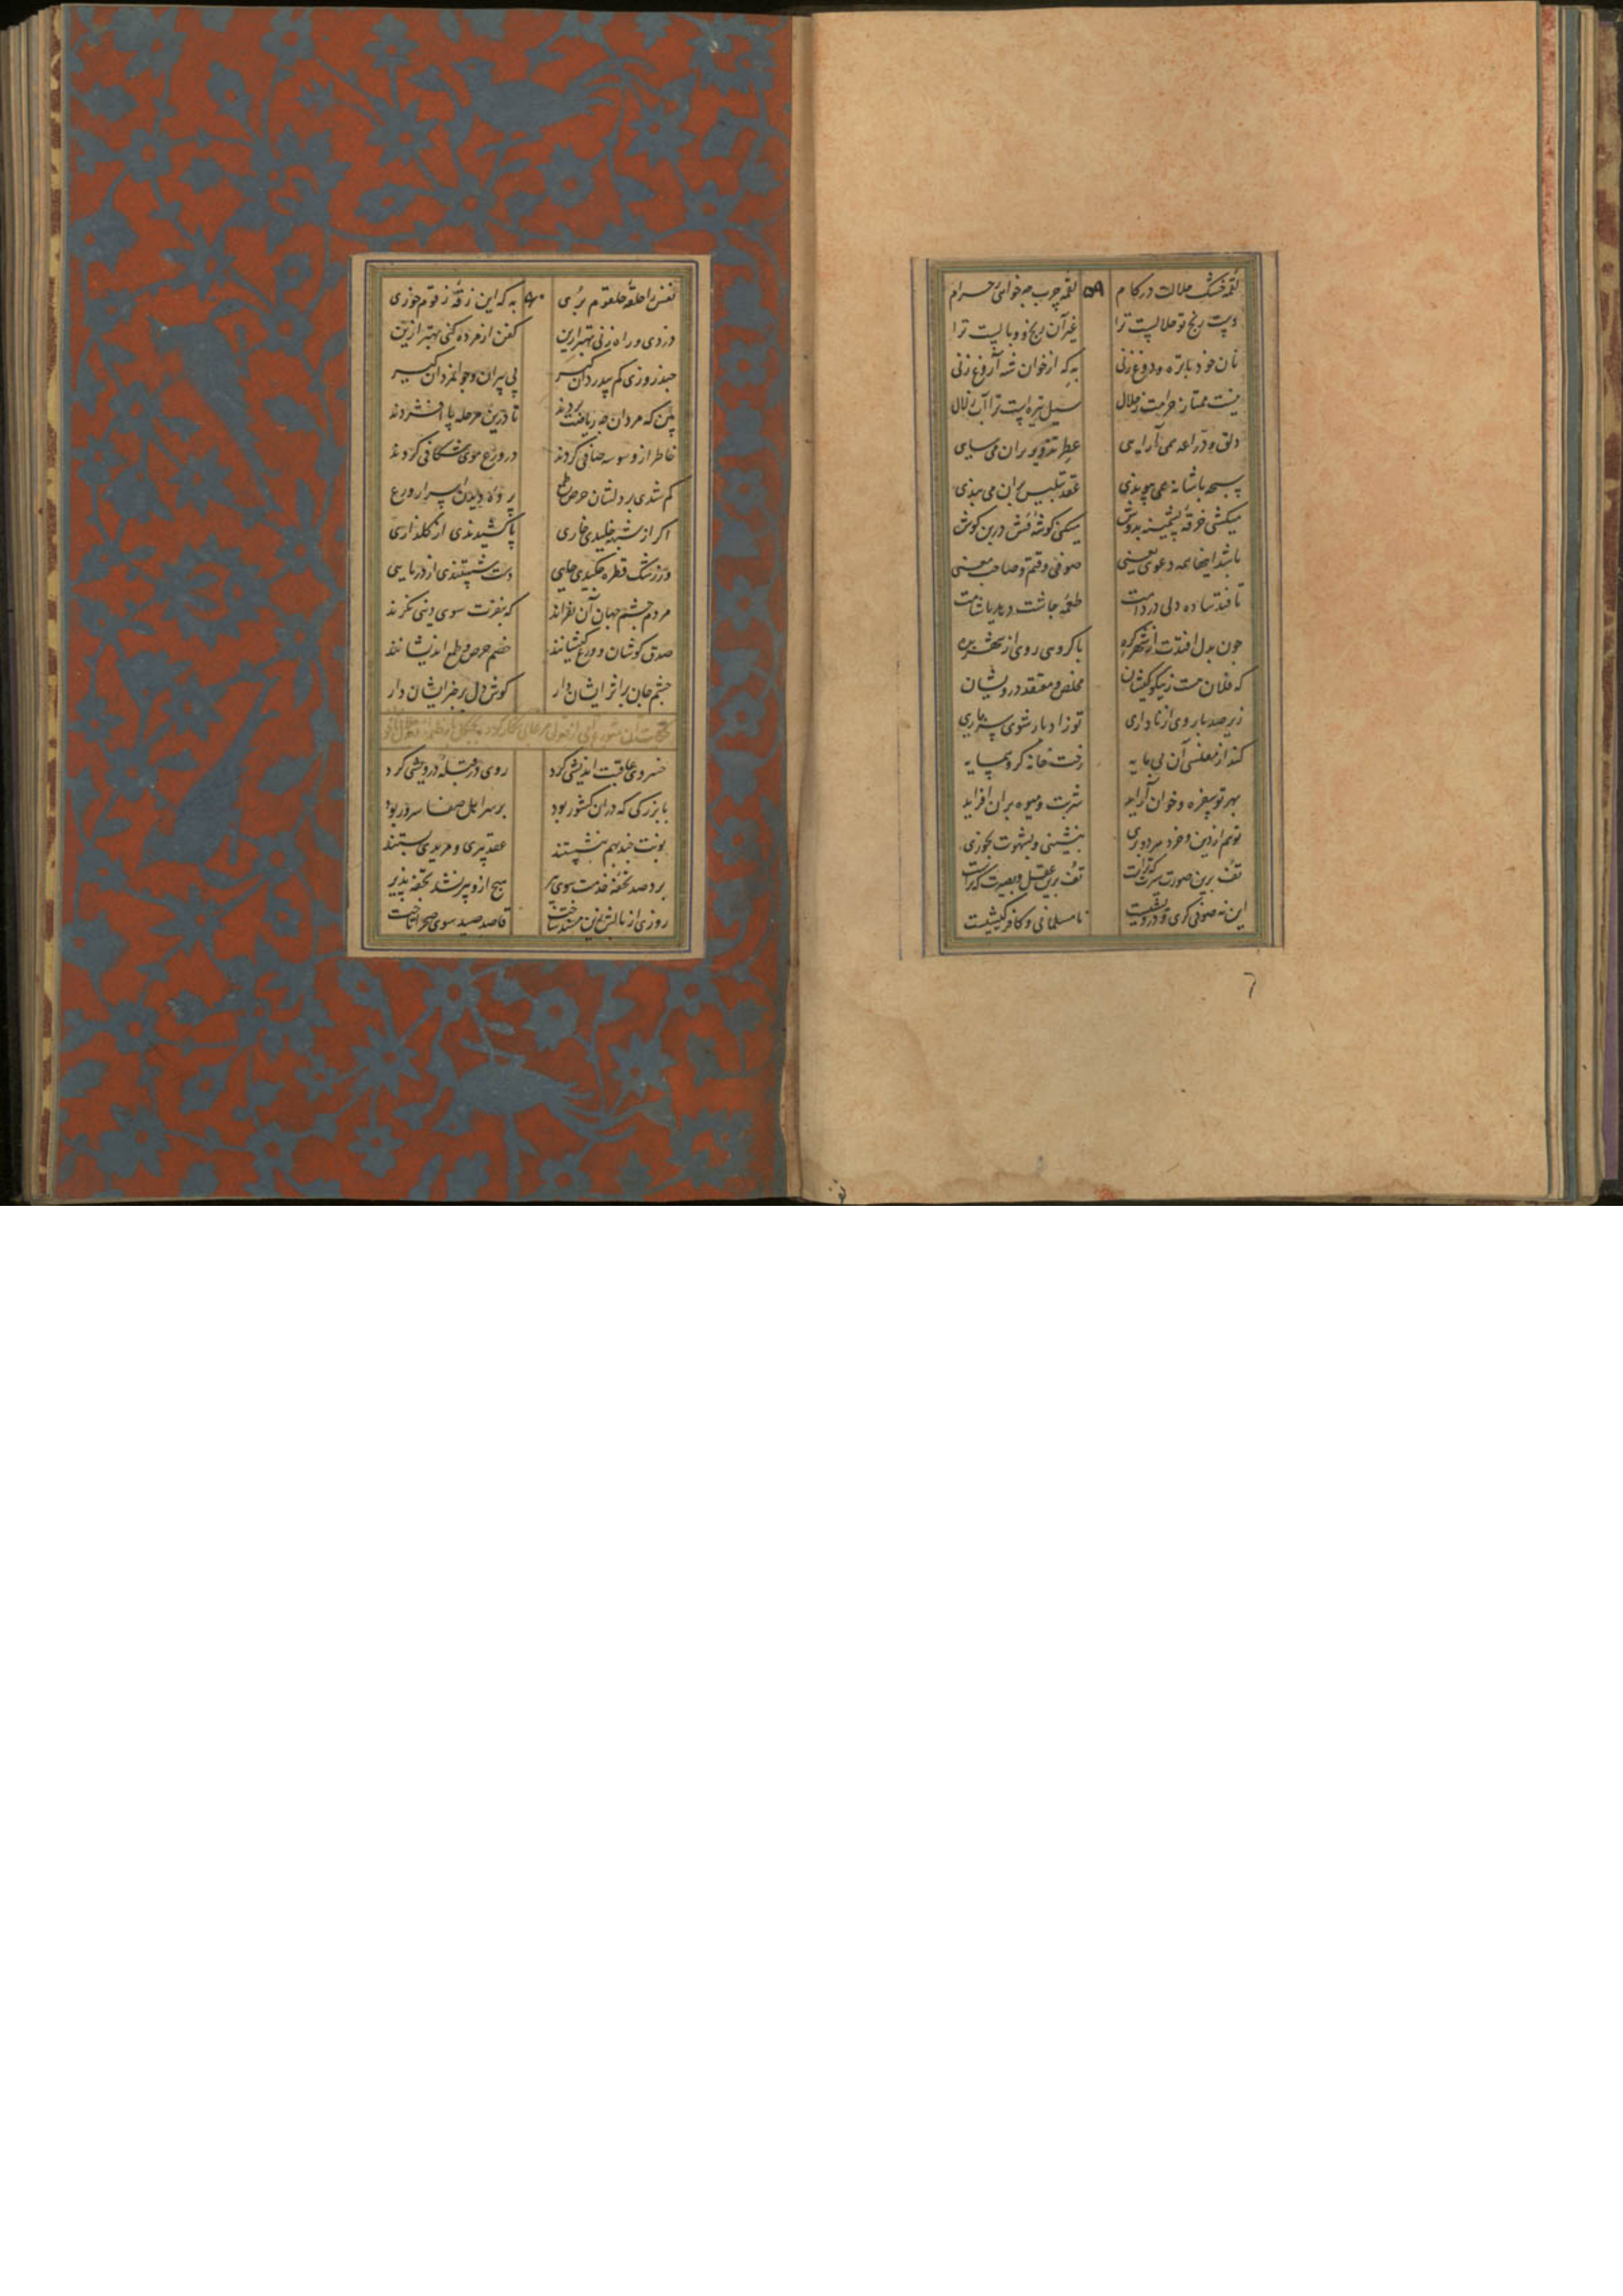 لقمه خشک حلالت در کام ۵۹ لقمه چرب چه خواهی ز حرام
دست رنج تو حلالیست ترا غیر آن رنج و وبالیست ترا
نان خود با تره و دوغ زنی به که از خوان شه آروغ زنی
نیست ممتاز حرامت ز حلال سیل تیره است ترا آب زلال
دلق و دراعه همی آرایی عطر تزویر بر آن می سایی
سبحه با شانه همی پیوندی عقد تلبیس بر آن می بندی
میکشی خرقه پشمینه بدوش میکنی گوشه فش درین گوش
باشد اینها همه دعوی یعنی صوفی وقتم و صاحب معنی
تا فتد ساده دلی در دامت طعمه چاشت دهد یا شامت
چون بدل افتدت از شهر گره با گروهی روی از شهر بده
که فلان هست ز نیکو کیشان مخلص و معتقد درویشان
زیر صد بار وی از ناداری تو ز ادبار شوی سرباری
کند از مفلسی آن بی مایه رخت خانه گرو همسایه
بهر تو سفره و خوان آراید شربت و میوه بر آن افزاید
تو هم از دین و خرد مرد و بری بنشینی و بشهوت بخوری
تف برین صورت و سیرت که تراست تف برین عقل و بصیرت که تراست
این نه صوفی گری و درویشیست نامسلمانی و کافر کیشیست
نفس را حلقه حلقوم بری ۶۰ به که این زقه زقوم خوری
دزدی و راه زنی بهتر ازین کفن از مرده کنی بهتر ازین
چند روزی کم بیدردان گیر پی پیران و جوانمردان گیر
بین که مردان چه ریاضت بردند تا درین مرحله پا افشردند
خاطر از وسوسه صافی کردند در ورع موی شکافی کردند
گم شدی بر دلشان حرص و طمع پرده دیدن اسرار ورع
اگر از شبهه خلیدی خاری پا کشیدندی از گلزاری
ور ز شک قطره چکیدی جایی دست شستندی از دریایی
مردم چشم جهان آن نفراند که بنفرت سوی دنیی نگرند
صدق کوشان و ورع کیشانند خصم حرص و طمع اندیشانند
چشم جان بر اثر ایشان دار گوش دل بر خبر ایشان دار
خسروی عاقبت اندیشی کرد روی در قبله درویشی کرد
با بزرگی که در آن کشور بود بر سر اهل صفا سرور بود
نوبت چند بهم بنشستند عقد پیری و مریدی بستند
برد صد تحفه خدمت سوی پیر هیچ ازو پیر نشد تحفه پذیر
روزی از بالش زین مسند ساخت قاصد صید سوی صحرا تاخت